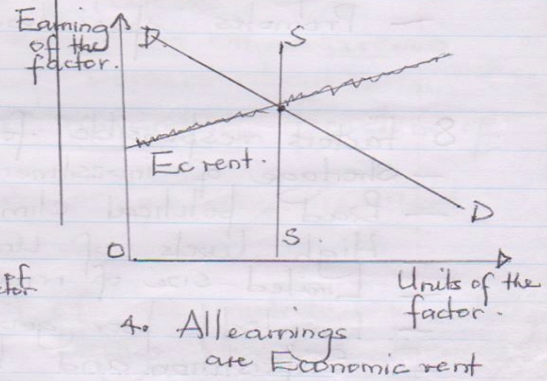 Earning
of the
factor.
D
S
Ec rent.
D
S
O
Units of the
factor.
of
4. All earnings
are Economic rent